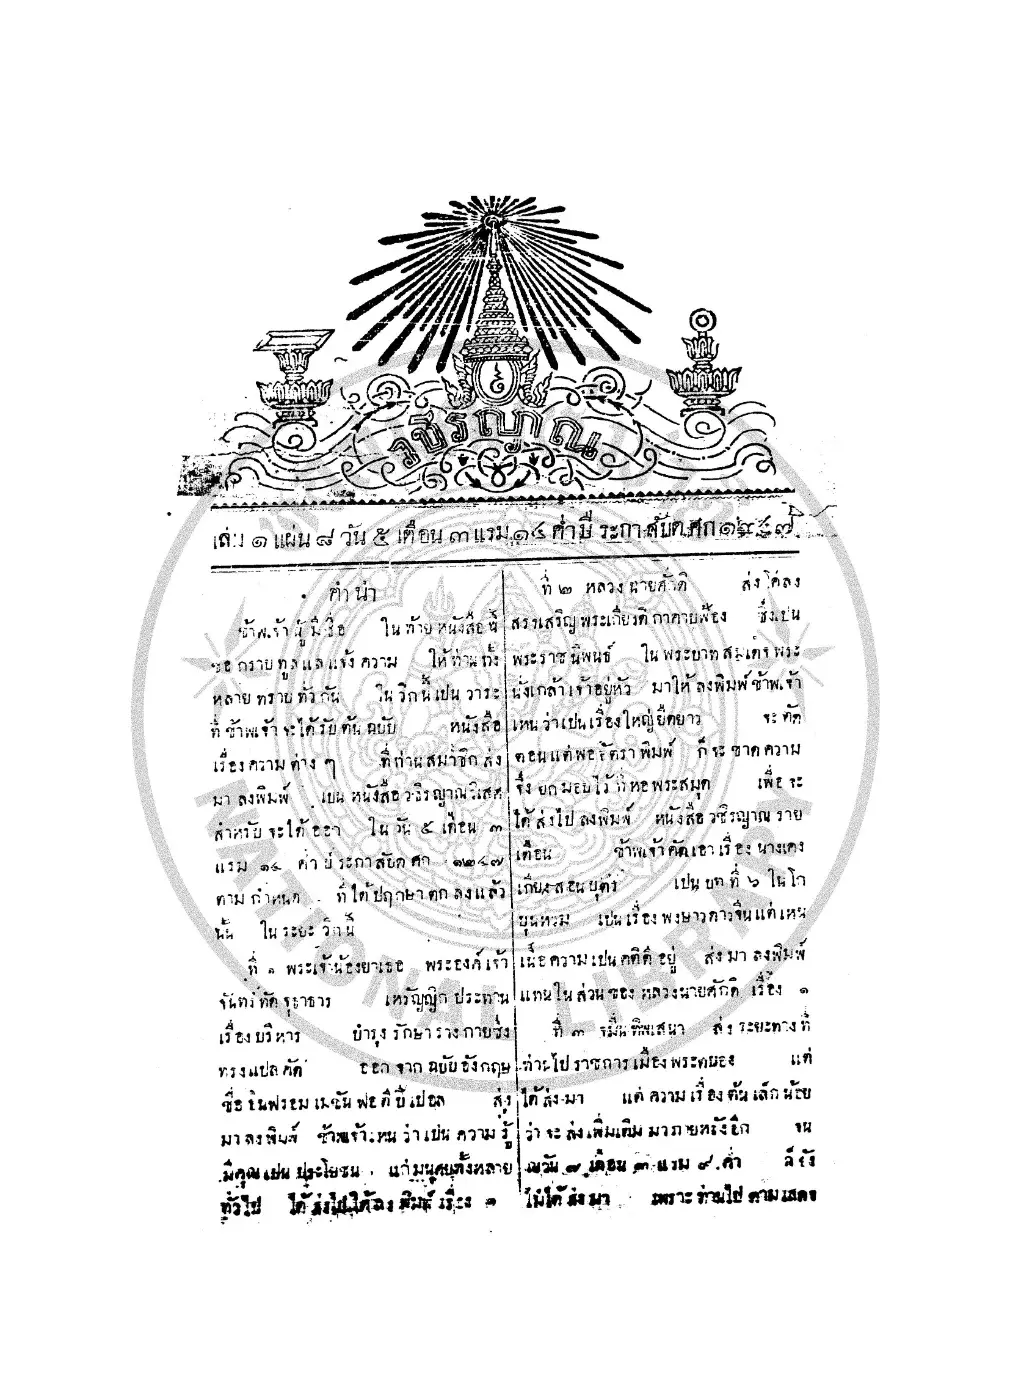 วชิรญาณ
เล่ม ๑ แผ่น ๘ วัน ๕ เดือน ๓ แรม ๑๔ ค่ำ ปี ระกา สัปต ศก ๑๒๔๗
คำนำ
ข้าพเจ้า ผู้ มี ชื่อ ใน ท้าย หนังสือ นี้
ขอ กราบ ทูล แล แจ้ง ความ ให้ ท่าน ทั้ง
หลาย ทราบ ทั่ว กัน ใน วิก นี้ เปน วาระ
ที่ ข้าพเจ้า จะ ได้ รับ ต้น ฉบับ หนังสือ
เรื่อง ความ ต่าง ๆ ที่ ท่าน สมาชิก ส่ง
มา ลงพิมพ์ เปน หนังสือ วชิรญาณวิเสศ
สำหรับ จะ ได้ ออก ใน วัน ๕ เดือน ๓
แรม ๑๔ ค่ำ ปี ระกา สัปต ศก ๑๒๔๗
ตาม กำหนด ที่ ได้ ปฤกษา ตก ลง แล้ว
นั้น ใน ระยะ วิก นี้
ที่ ๑ พระเจ้าน้องยาเธอ พระองค์เจ้า
จันทร์ทัตจุฑาธาร เหรัญญิก ประทาน
เรื่อง บริหาร บำรุง รักษา ร่าง กาย ซึ่ง
ทรง แปล คัด ออก จาก ฉบับ อังกฤษ
ชื่อ อินฟรอมเมชัน ฟอ ดี ปี้เปอล ส่ง
มา ลง พิมพ์ ข้าพเจ้า เหน ว่า เปน ความ รู้
มี คุณ เปน ประโยชน แก่ มนุศย ทั้งหลาย
ทั่ว ไป ได้ ส่ง ไป ได้ ลง พิมพ์ เรื่อง ๑
ที่ ๒ หลวง นายศักดิ ส่ง โคลง
สรรเสริญ พระเกียรติ กาตาบฟ้อง ซึ่ง เปน
พระราชนิพนธ์ ใน พระบาท สมเด็จ พระ
นั่งเกล้า เจ้าอยู่หัว มา ให้ ลงพิมพ์ ข้าพเจ้า
เหน ว่า เปน เรื่อง ใหญ่ ยืดยาว จะ ตัด
ตอน แต่ พอ อัตรา พิมพ์ ก็ จะ ขาด ความ
จึ่ง ยก มอบ ไว้ ที่ หอพระสมุด เพื่อ จะ
ได้ ส่ง ไป ลงพิมพ์ หนังสือ วชิรญาณ ราย
เดือน ข้าพเจ้า คัด เอา เรื่อง นางเตง
เกียงสอนบุตร์ เปน บท ที่ ๖ ใน โก
ขุนหวม เปน เรื่อง พงษาวดารจีน แต่ เหน
เนื้อ ความ เปน คติ ดี อยู่ ส่ง มา ลงพิมพ์
แทน ใน ส่วน ของ หลวง นายศักดิ เรื่อง ๑
ที่ ๓ จมื่นทิพเสนา ส่ง ระยะทาง ที่
ท่าน ไป ราชการ เมือง พระตบอง แต่
ได้ ส่ง มา แต่ ความ เรื่อง ต้น เล็ก น้อย
ว่า จะ ส่ง เพิ่มเติม มา ภายหลัง อีก จน
ณวัน ๗ เดือน ๓ แรม ๙ ค่ำ ก็ ยัง
ไม่ ได้ ส่ง มา เพราะ ท่าน ไป ตาม เสดจ
NATIONAL LIBRARY